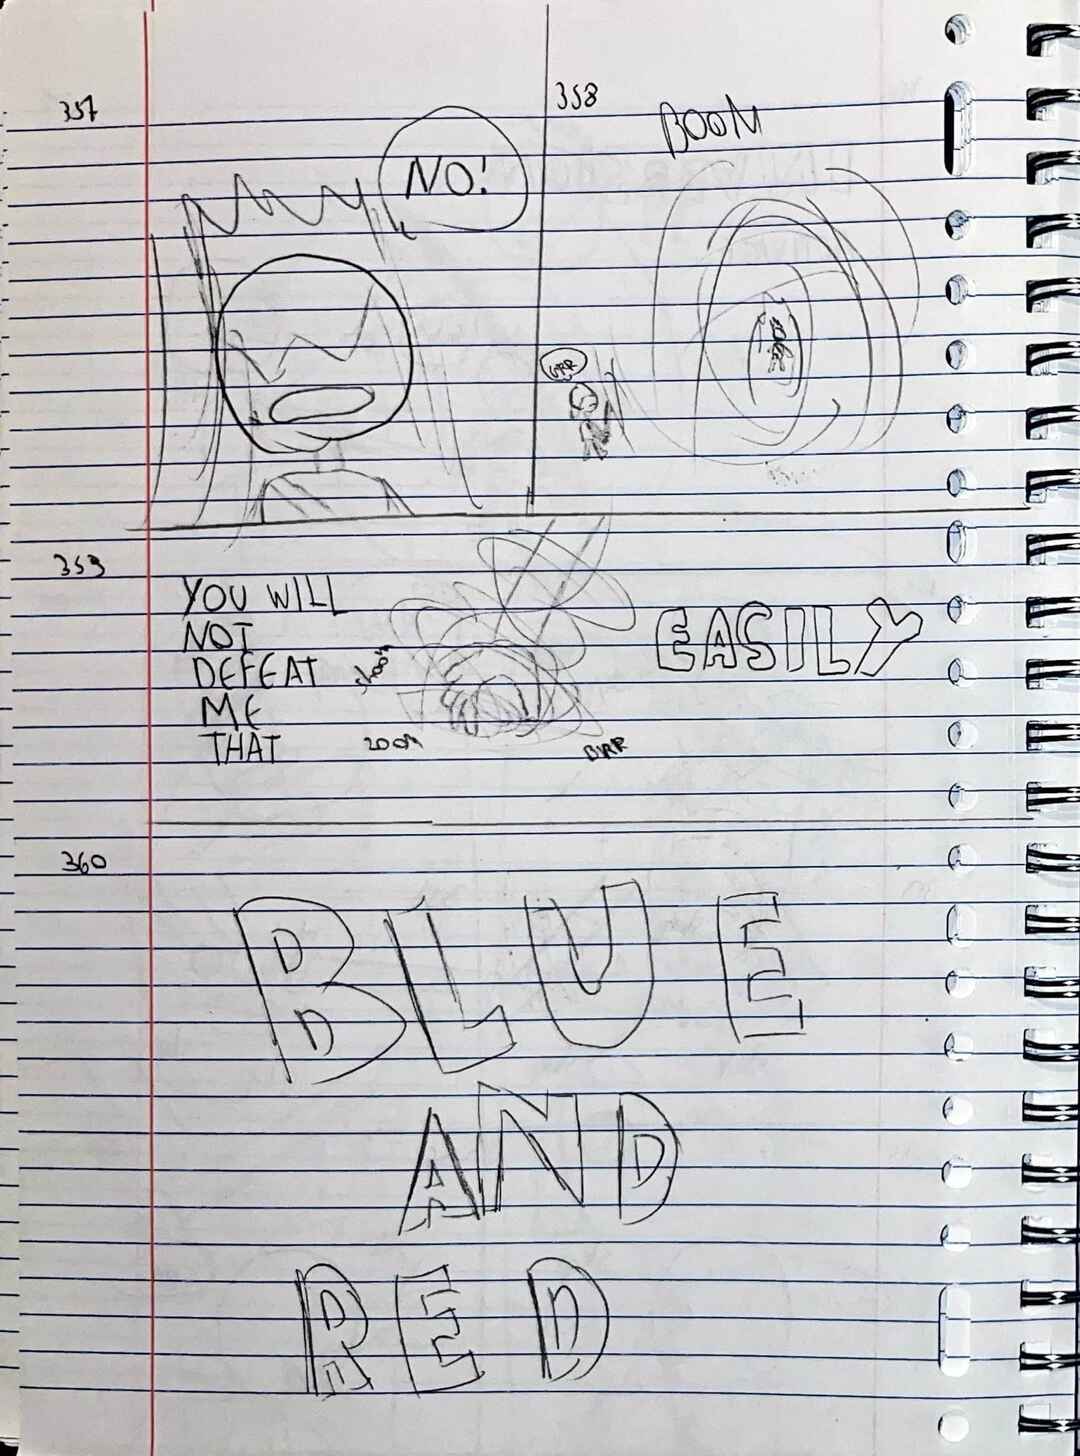 357
NO!
358
BOOM
GRR
359
YOU WILL
NOT
DEFEAT
ME
THAT
ZOOM
BVRR
EASILY
360
BLUE
AND
RED